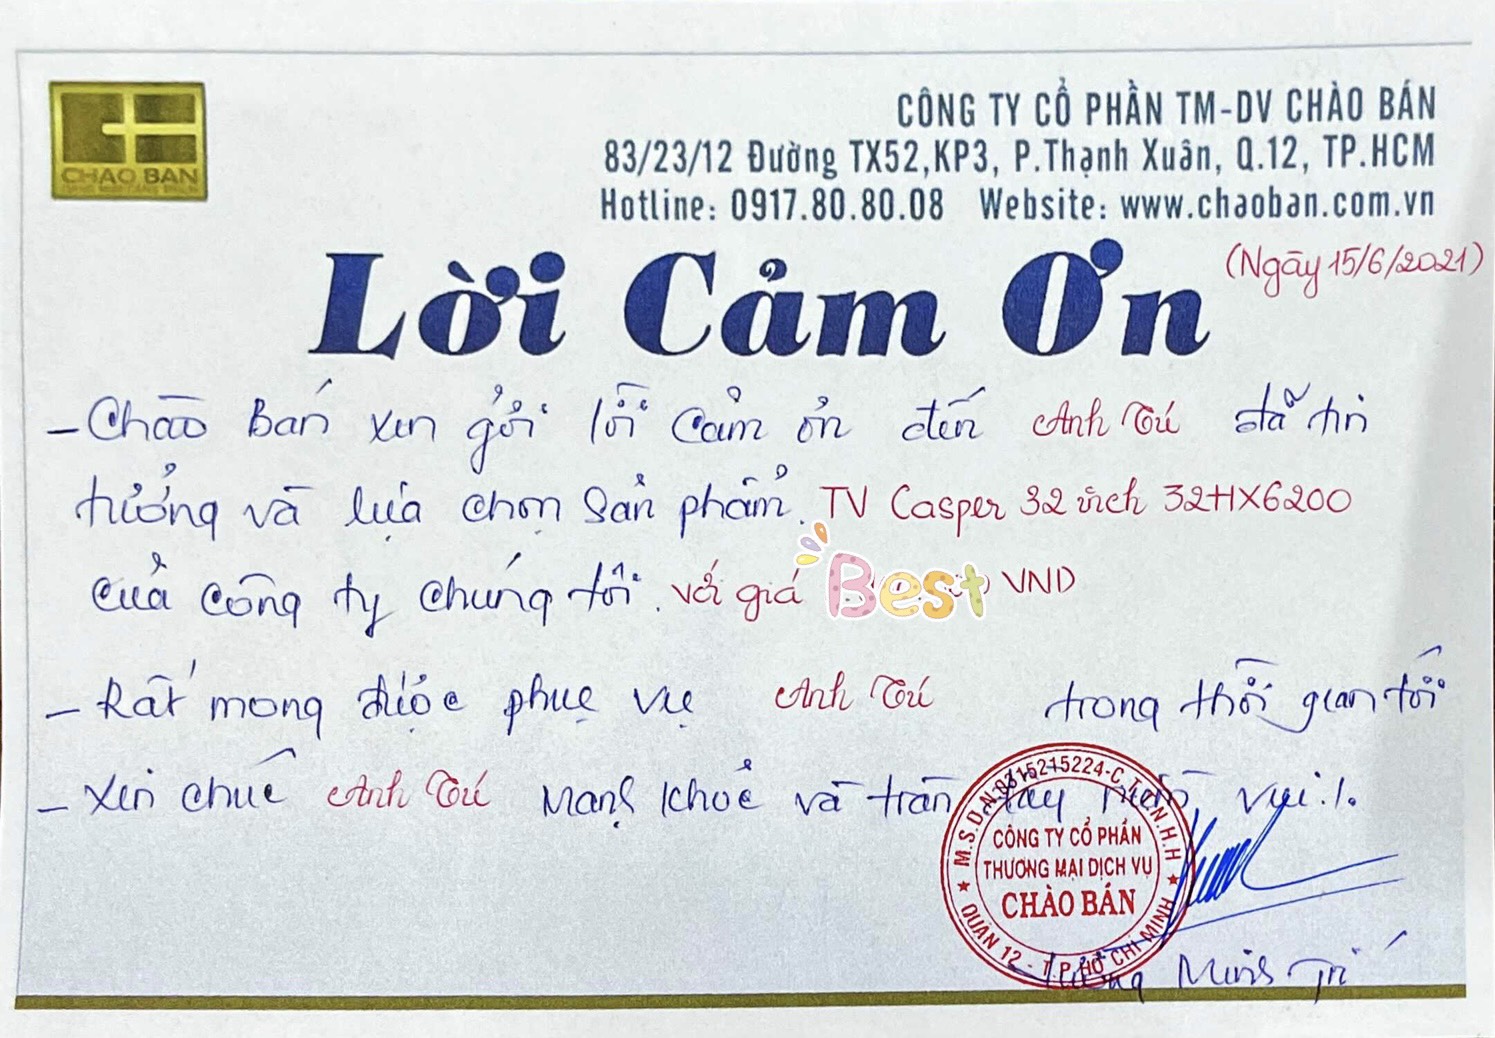 CHAO BAN
CÔNG TY CỔ PHẦN TM-DV CHÀO BÁN
83/23/12 Đường TX52,KP3, P.Thạnh Xuân, Q.12, TP.HCM
Hotline: 0917.80.80.08 Website: www.chaoban.com.vn
Lời Cảm Ơn
(Ngày 15/6/2021)
- Chào Bán xin gửi lời cảm ơn đến Anh Tú đã tin
tưởng và lựa chọn sản phẩm. TV Casper 32 inch 32HX6200
của công ty chúng tôi. với giá Best VND
- Rất mong được phục vụ Anh Tú trong thời gian tới
- Xin chúc Anh Tú mạnh khoẻ và tràn đầy niềm vui!.
M.S.D.N:0315215224-C.T.C.N.H.H
CÔNG TY CỔ PHẦN
THƯƠNG MẠI DỊCH VỤ
CHÀO BÁN
QUẬN 12 - T.P HỒ CHÍ MINH
Minh Trí